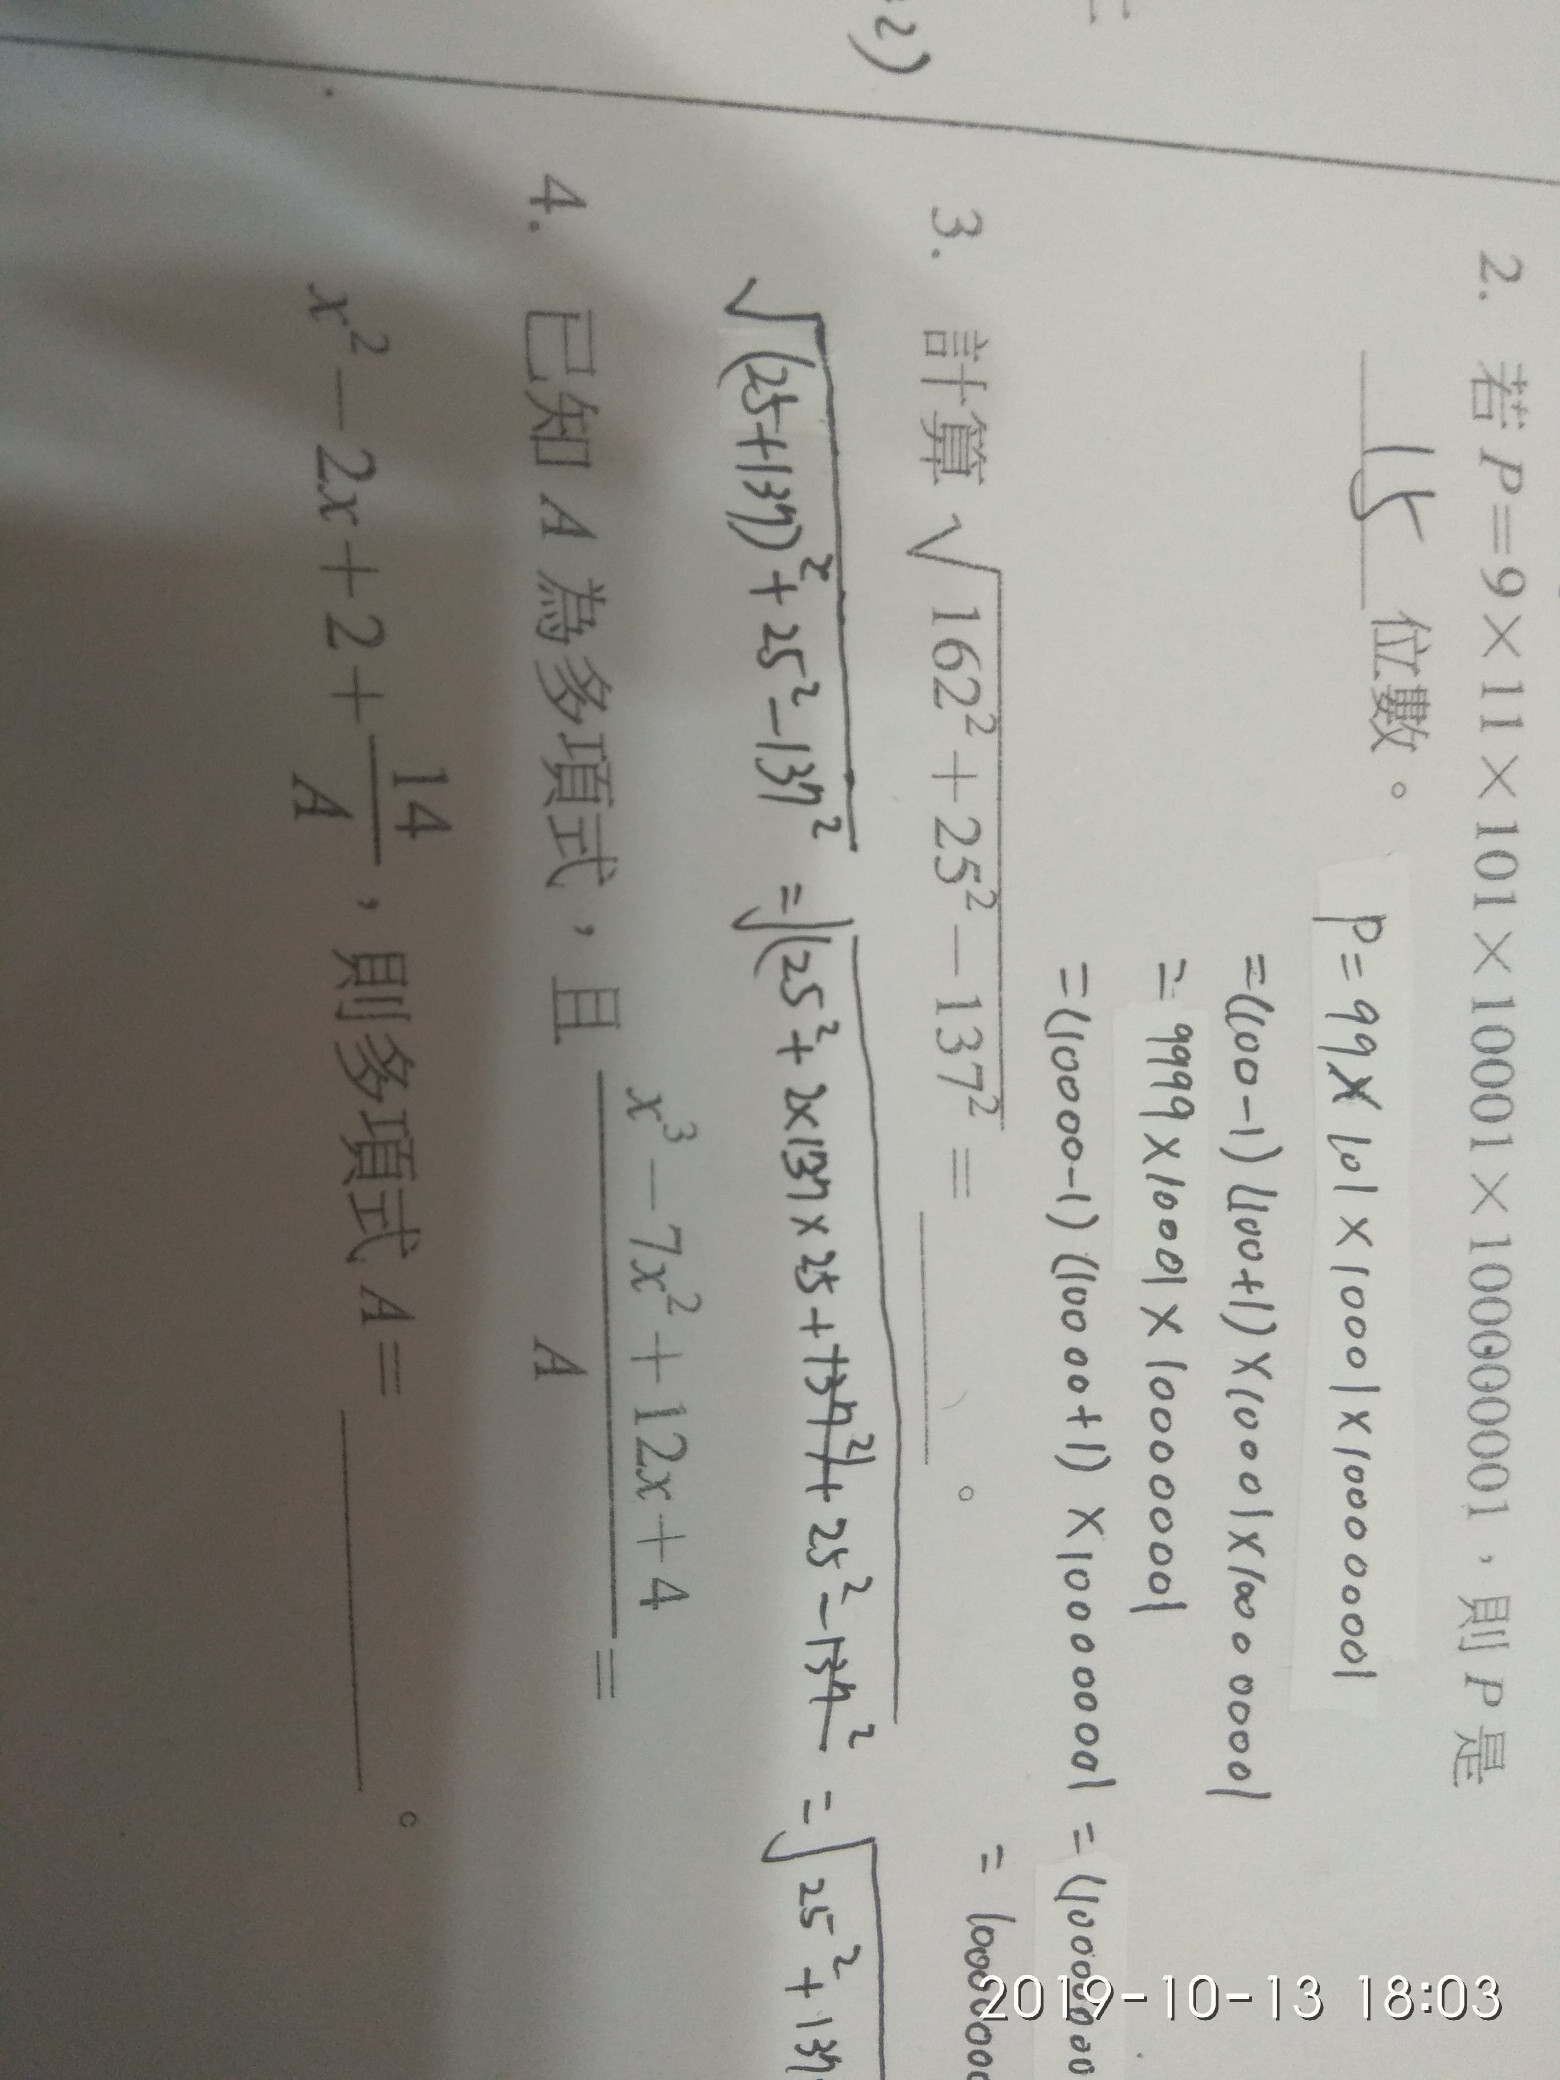 2)
2. 若 P=9×11×101×10001×100000001，則 P 是
15 位數。
P=99×101×10001×100000001
=(100-1)(100+1)×10001×100000001
=9999×10001×100000001
=(10000-1)(10000+1)×100000001=(10000000
=10000000
3. 計算 √162²+25²-137² = ______。
√(25+137)²+25²-137² =√(25²+2×137×25+137²)+25²-137² =√25²+137
4. 已知 A 為多項式，且 x³-7x²+12x+4/A =
x²-2x+2+14/A，則多項式 A= ______。
2019-10-13 18:03